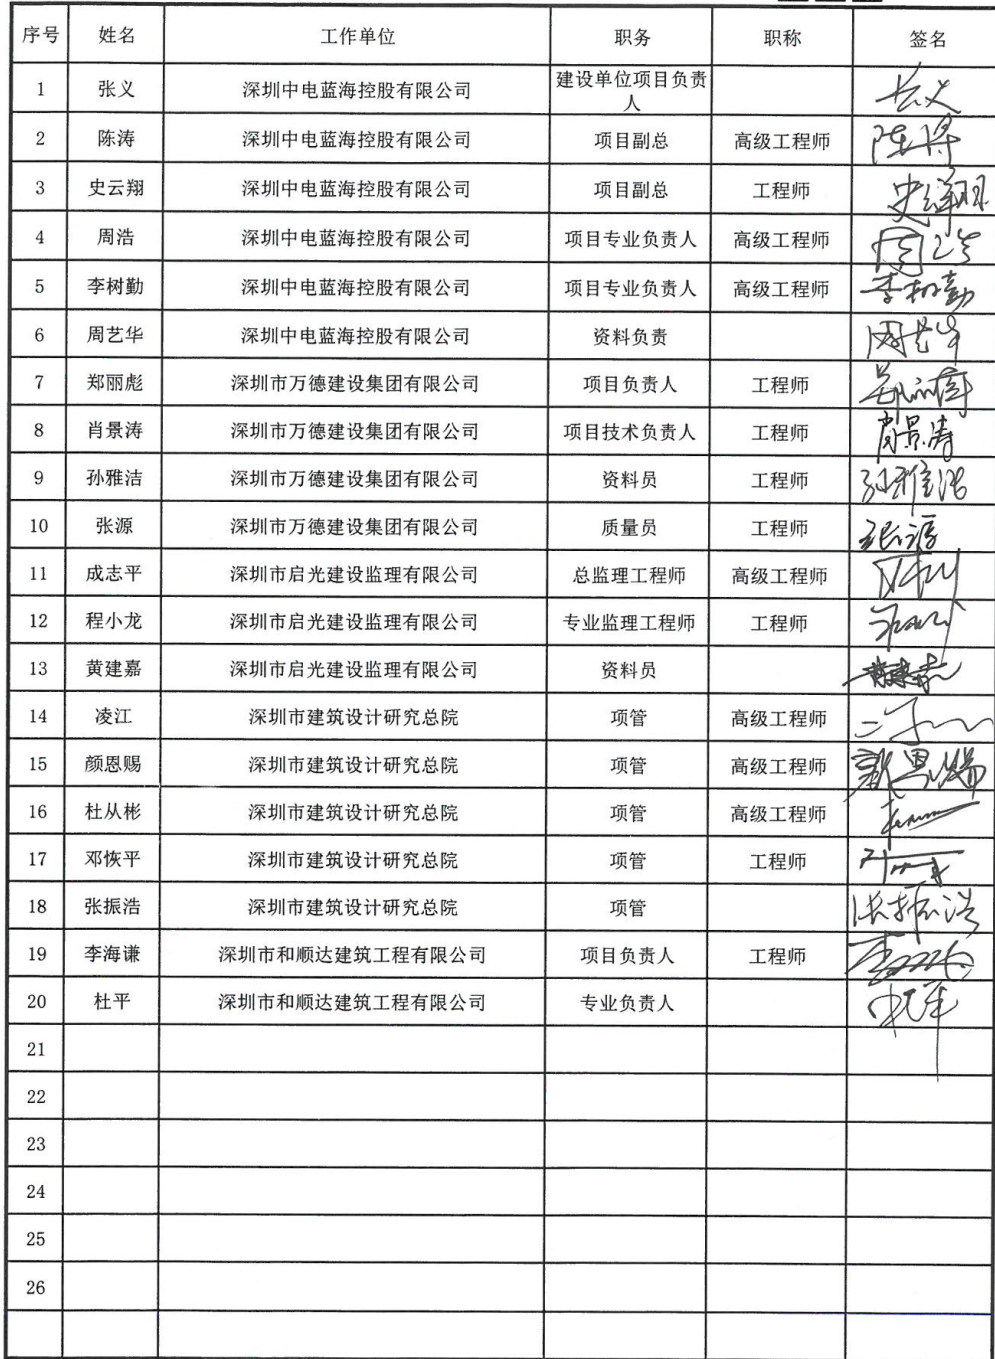 序号 姓名 工作单位 职务 职称 签名
1 张义 深圳中电蓝海控股有限公司 建设单位项目负责人 张义
2 陈涛 深圳中电蓝海控股有限公司 项目副总 高级工程师 陈涛
3 史云翔 深圳中电蓝海控股有限公司 项目副总 工程师 史云翔
4 周浩 深圳中电蓝海控股有限公司 项目专业负责人 高级工程师 周浩
5 李树勤 深圳中电蓝海控股有限公司 项目专业负责人 高级工程师 李树勤
6 周艺华 深圳中电蓝海控股有限公司 资料负责 周艺华
7 郑丽彪 深圳市万德建设集团有限公司 项目负责人 工程师
8 肖景涛 深圳市万德建设集团有限公司 项目技术负责人 工程师 肖景涛
9 孙雅洁 深圳市万德建设集团有限公司 资料员 工程师 孙雅洁
10 张源 深圳市万德建设集团有限公司 质量员 工程师 张源
11 成志平 深圳市启光建设监理有限公司 总监理工程师 高级工程师
12 程小龙 深圳市启光建设监理有限公司 专业监理工程师 工程师
13 黄建嘉 深圳市启光建设监理有限公司 资料员
14 凌江 深圳市建筑设计研究总院 项管 高级工程师
15 颜恩赐 深圳市建筑设计研究总院 项管 高级工程师 颜恩赐
16 杜从彬 深圳市建筑设计研究总院 项管 高级工程师
17 邓恢平 深圳市建筑设计研究总院 项管 工程师
18 张振浩 深圳市建筑设计研究总院 项管 张振浩
19 李海谦 深圳市和顺达建筑工程有限公司 项目负责人 工程师
20 杜平 深圳市和顺达建筑工程有限公司 专业负责人
21
22
23
24
25
26